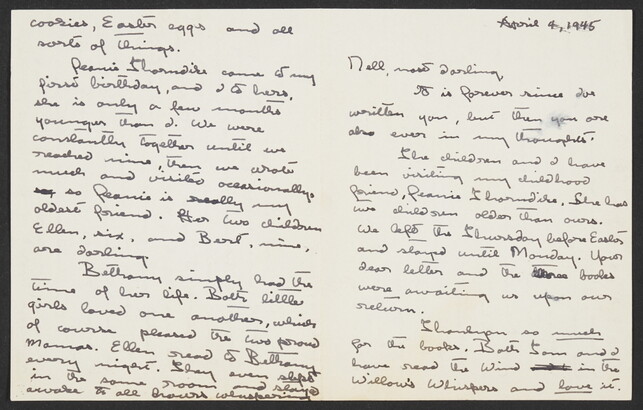 April 4, 1945
Nell, most darling,
It is forever since I've
written you, but then you are
also ever in my thoughts.
The children and I have
been visiting my childhood
friend, Jeanie Thorndike. She has
two children older than ours.
We left the Thursday before Easter
and stayed until Monday. Your
dear letter and the books
were awaiting us upon our
return.
Thank you so much
for the books. Both Tom and I
have read the Wind in the
Willows Whispers and love it.
cookies, Easter eggs and all
sorts of things.
Jeanie Thorndike came to my
first birthday, and I to hers,
she is only a few months
younger than I. We were
constantly together until we
reached nine, then we wrote
much and visited occasionally.
so Jeanie is really my
oldest friend. Her two children
Ellen, six, and Bert, nine,
are darling.
Bethany simply had the
time of her life. Both little
girls loved one another, which
of course pleased the two proud
Mamas. Ellen read to Bethany
every night. They even slept
in the same room and stayed
awake to all hours whispering